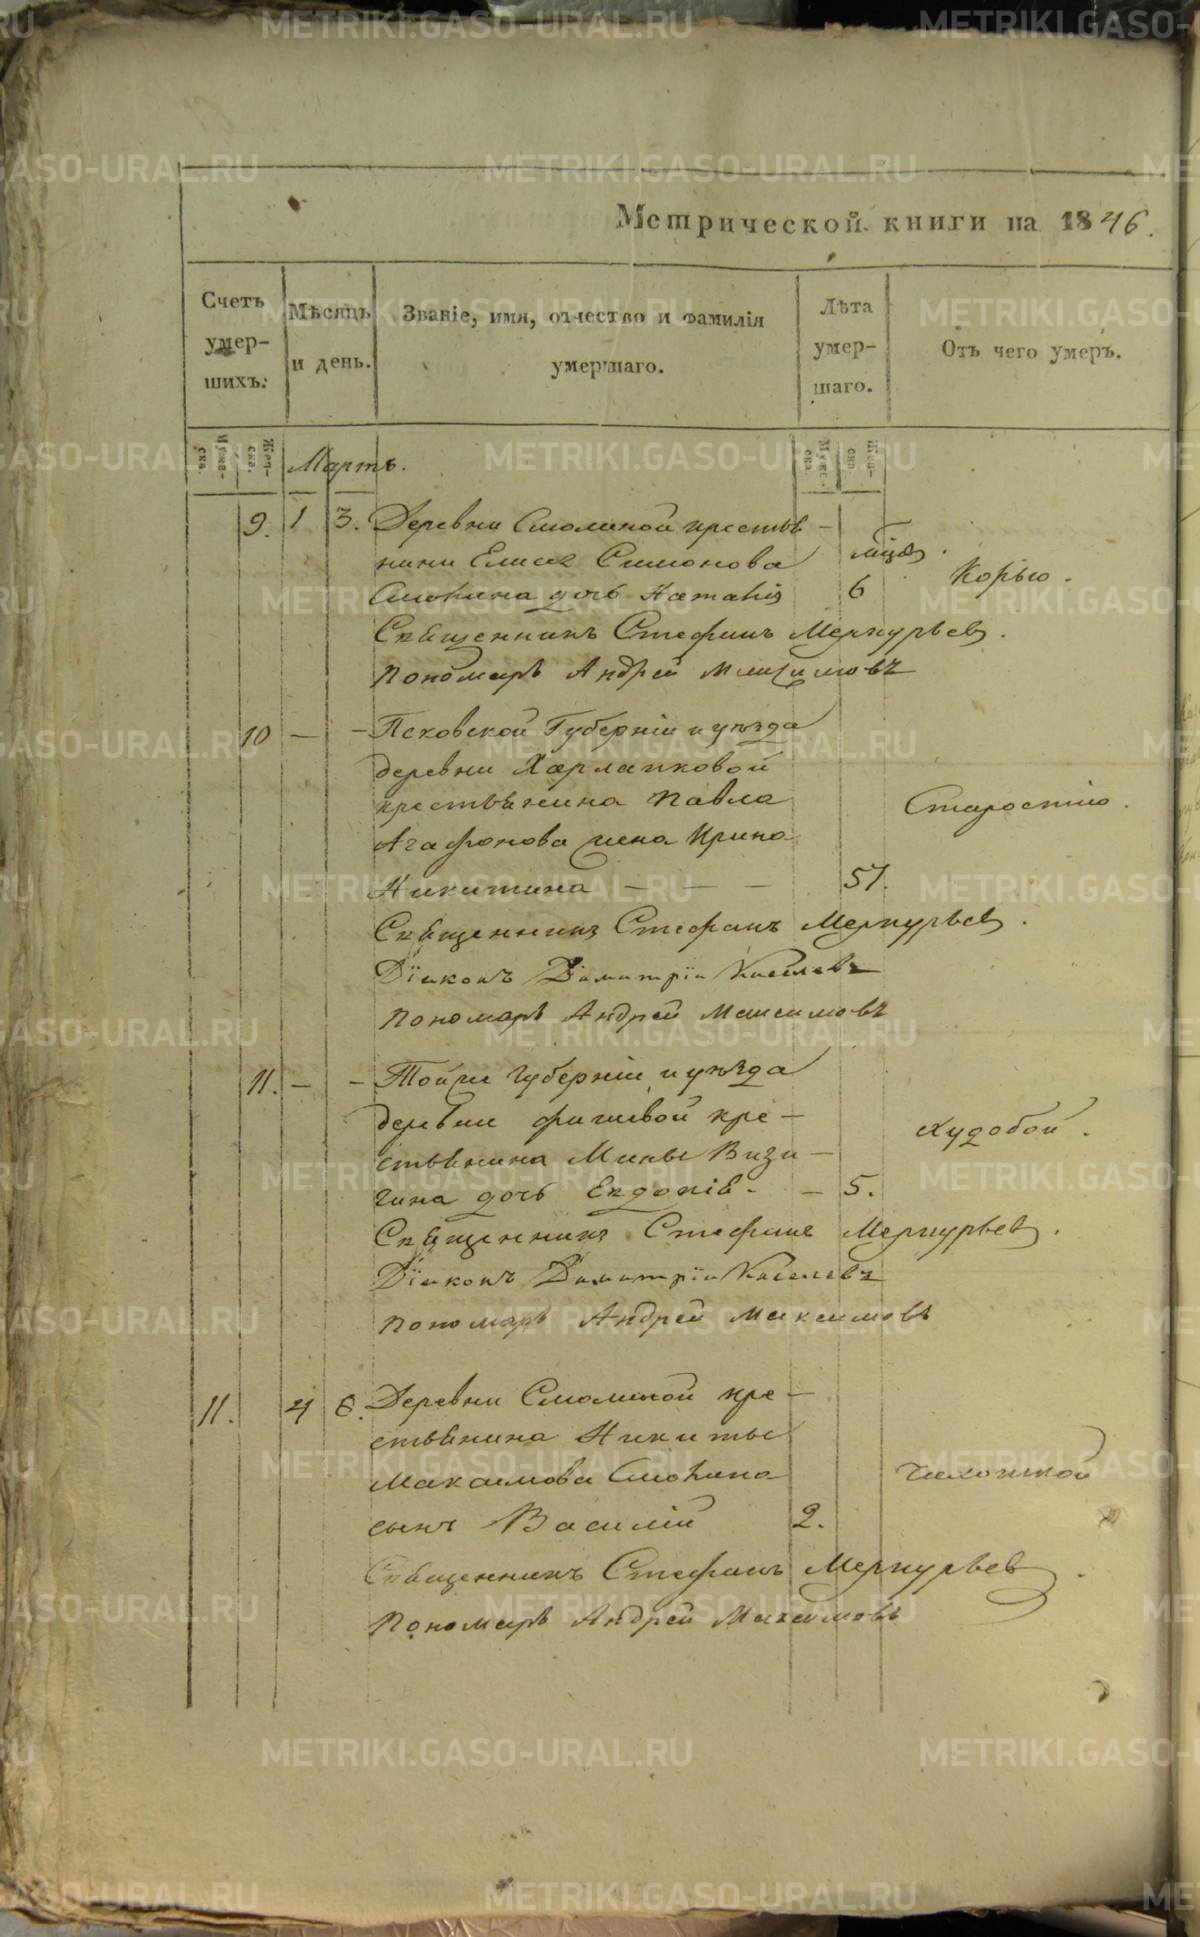 Метрической книги на 1846.
Счетъ умершихъ.
Мѣсяцъ и день.
Званіе, имя, отчество и фамилія умершаго.
Лѣта умершаго.
Отъ чего умеръ.
Мужеска.
Женска.
Мартъ.
Мужеска.
Женска.
9. 1 3. Деревни Смолиной крестья-
нина Елисея Симонова
Смолина дочь Наталія 6 мѣсяц. Корью.
Священникъ Стефанъ Меркурьев.
Пономарь Андрей Максимовъ
10 — — Псковской Губерніи и уѣзда
деревни Харлапковой
крестьянина Павла Старостію.
Агафонова жена Ирина
Никитина — — — 57.
Священникъ Стефанъ Меркурьев.
Діаконъ Димитрій Киселевъ
Пономарь Андрей Максимовъ
11. — — Тойже губерніи и уѣзда
деревни кре- Худобой.
стьянина Мины Визи-
гина дочь Евдокія — 5.
Священникъ Стефанъ Меркурьев.
Діаконъ Димитрій Киселевъ
Пономарь Андрей Максимовъ
11. 4 6. Деревни Смолиной кре-
стьянина Никиты
Максимова Смолина Чихоткой
сынъ Василій 2.
Священникъ Стефанъ Меркурьев.
Пономарь Андрей Максимовъ
METRIKI.GASO-URAL.RU